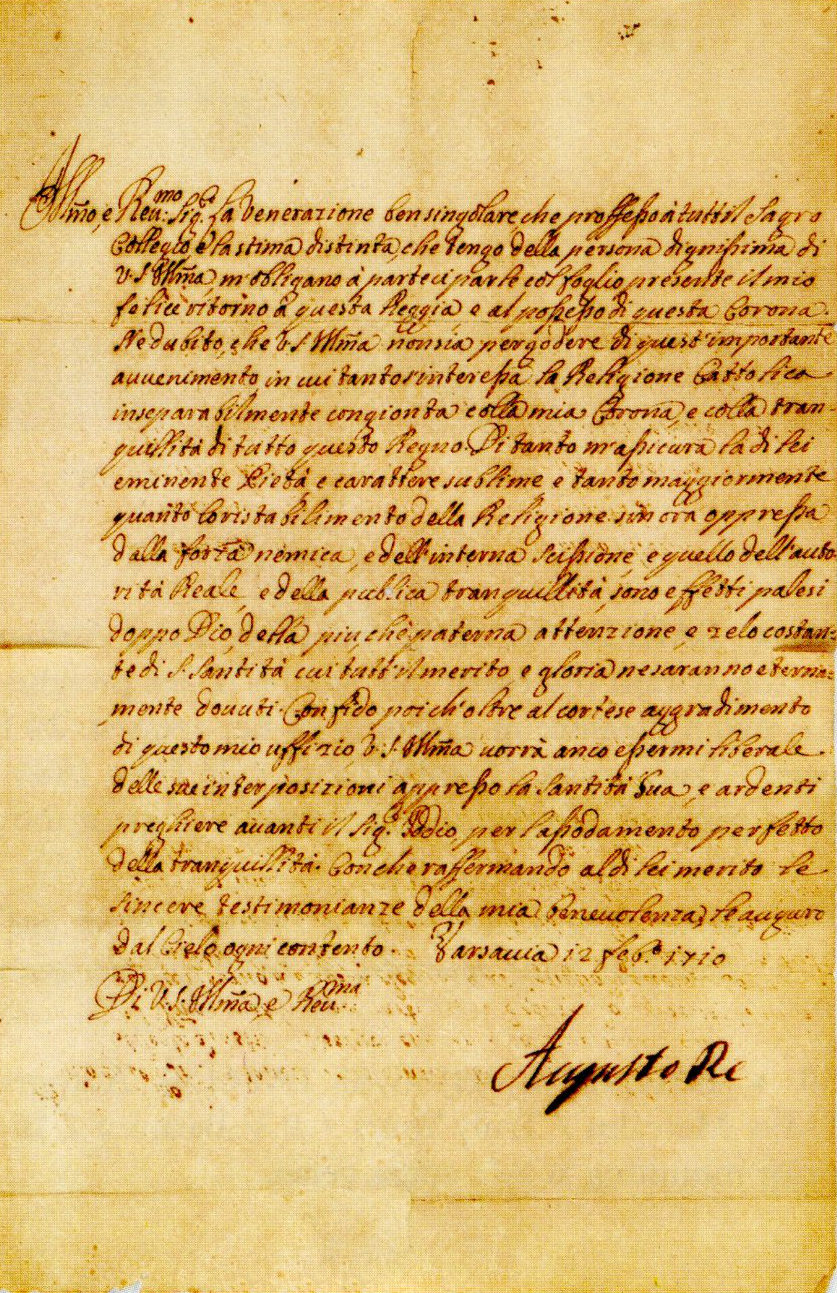 Illmo, e Reu:mo Sig.r La Venerazione ben singolare, che professo à tutt'il Sagro
Collegio e la stima distinta, che tengo della persona dignissima di
V.S. Illma m'obligano à parteciparle col foglio presente il mio
felice ritorno à questa Reggia e al possesso di questa Corona.
Ne dubito, che V.S. Illma non sia per godere di quest'importante
auuenimento in cui tanto s'interessa la Religione Cattolica
inseparabilmente congionta colla mia Corona, e colla tran
quillità di tutto questo Regno. Di tanto m'assicura la di lei
eminente Pietà e carattere sublime e tanto maggiormente
quanto lo ristabilimento della Religione sin ora oppressa
dalla forza nemica, e dell'interna scissione, e quello dell'auto
rità Reale, e della publica tranquillità, sono effetti palesi
doppo Dio, della più, che paterna attenzione, e zelo costan=
te di S. Santità cui tutt'il merito, e gloria ne saranno eterna=
mente douuti. Confido poi ch'oltre al cortese aggradimento
di questo mio uffizio, V.S. Illma uorrà anco essermi liberale
delle sue interposizioni appresso la Santità Sua, e ardenti
preghiere auanti il Sig.r Iddio per l'assodamento perfetto
della tranquillità. Con che raffermando al di lei merito le
sincere testimonianze della mia beneuolenza, le auguro
dal Cielo ogni contento. Varsauia 12 feb.o 1710
Di V.S. Illma, e Reu:ma
Augusto Re